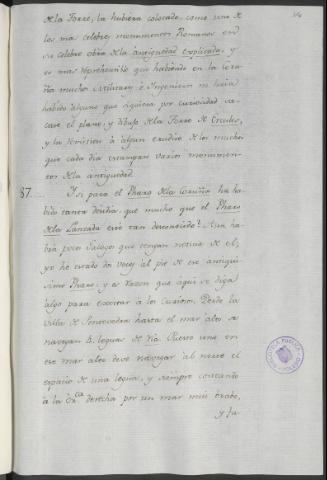 de la Torre, la hubiera colocado, como uno de
los mas celebres monumentos Romanos en
su celebre obra de la antiguedad explicada, y
es mas reprehensible que habiendo en la Coru-
ña muchos Militares, e Ingenieros no haia
habido alguno que siquiera por curiosidad sa-
case el plano, y dibujo de la Torre de Ercules,
y la remitiese à algun erudito de los muchos
que cada dia estampan varios monumen-
tos de la antiguedad.
87. Y si para el Pharo de la Coruña ha ha-
bido tanto descuido, que mucho que el Pharo
de la Lanzada esté tan desconocido? Aun ha-
brá pocos Galegos que tengan noticia de el;
yo he estado dos veces al pie de ese antiqui-
simo Pharo, y es razon que aqui se diga
algo para excitar à los Curiosos. Desde la
Villa de Pontevedra hasta el mar alto se
navegan 3. leguas de Ria. Puesto uno en
ese mar alto debe navegar al norte el
espacio de una legua, y siempre costeando
à la dra. derecha por un mar mui brabo,
y fu-
BIBLIOTECA PUBLICA
TOLEDO